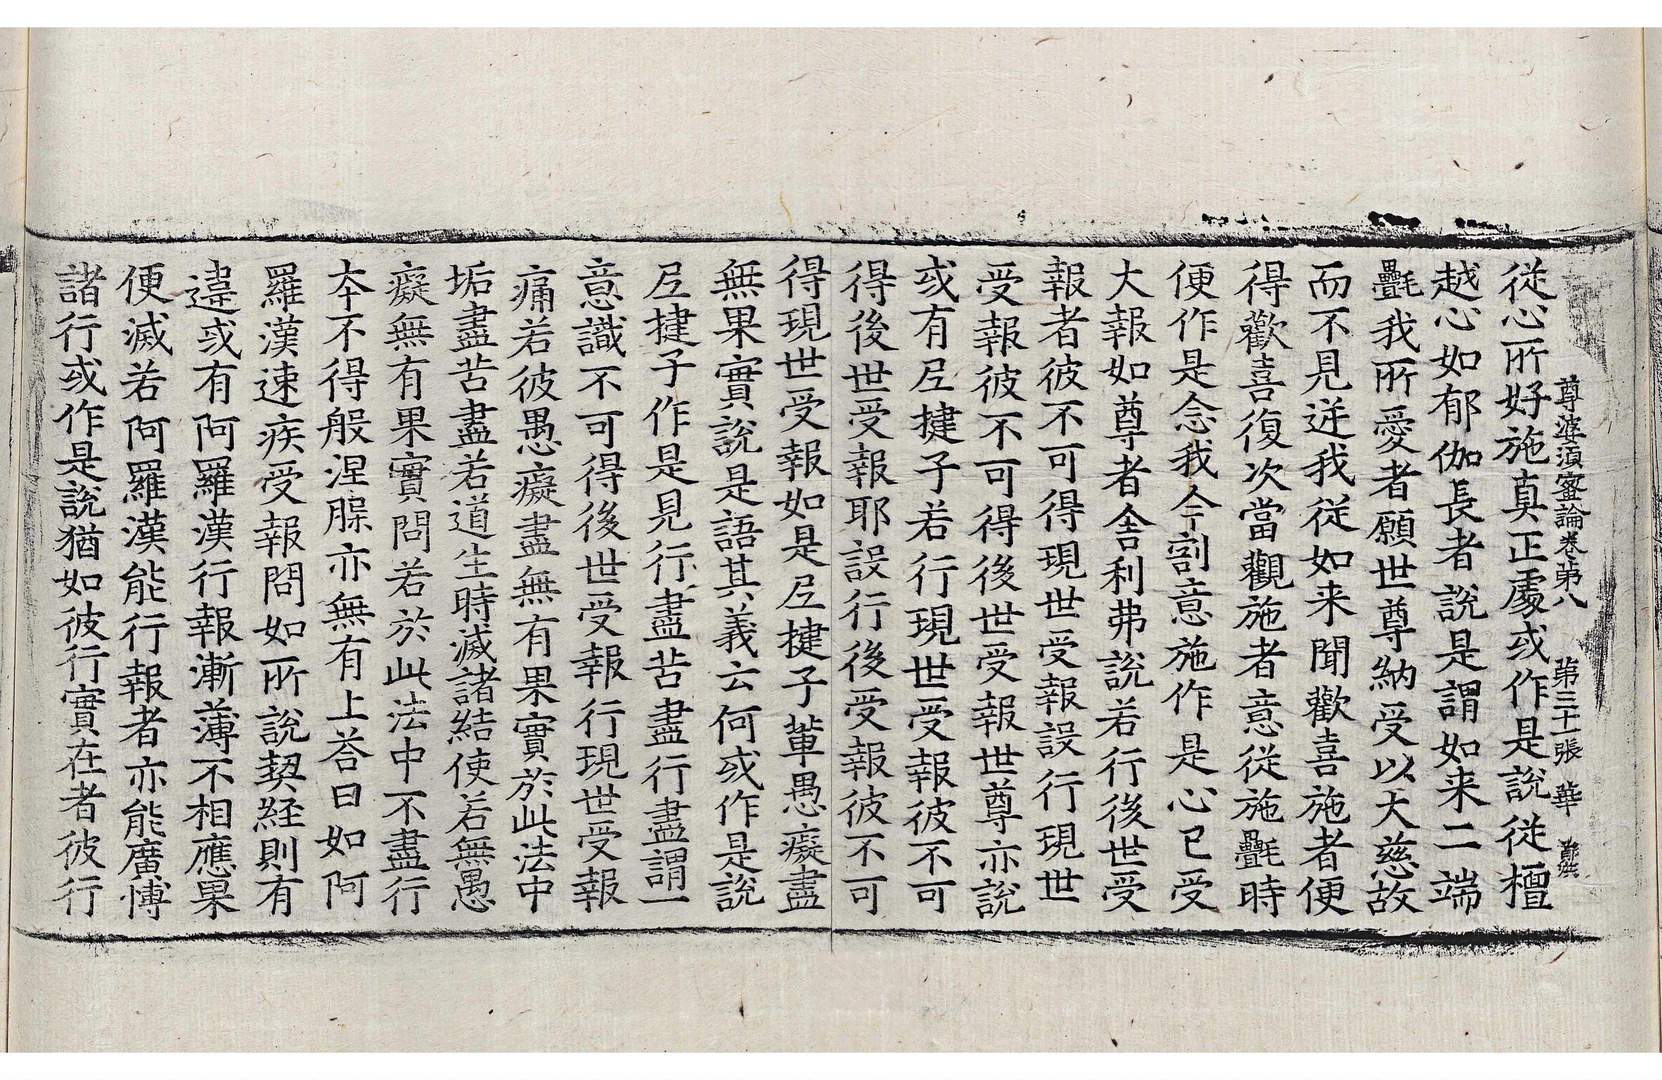 尊婆湏蜜論卷第八　第三十張　華
從心所好施真正處或作是說從檀
越心如郁伽長者說是謂如来二端
㲲我所愛者願世尊納受以大慈故
而不見迸我從如来聞歡喜施者便
得歡喜復次當觀施者意從施㲲時
便作是念我今割意施作是心已受
大報如尊者舍利弗說若行後世受
報者彼不可得現世受報設行現世
受報彼不可得後世受報世尊亦說
或有尼揵子若行現世受報彼不可
得後世受報耶設行後受報彼不可
得現世受報如是尼揵子輩愚癡盡
無果實說是語其義云何或作是說
尼揵子作是見行盡苦盡行盡謂一
意識不可得後世受報行現世受報
痛若彼愚癡盡無有果實於此法中
垢盡苦盡若道生時滅諸結使若無愚
癡無有果實問若於此法中不盡行
本不得般涅膝亦無有上荅曰如阿
羅漢速疾受報問如所說契経則有
違或有阿羅漢行報漸薄不相應果
便滅若阿羅漢能行報者亦能廣愽
諸行或作是說猶如彼行實在者彼行